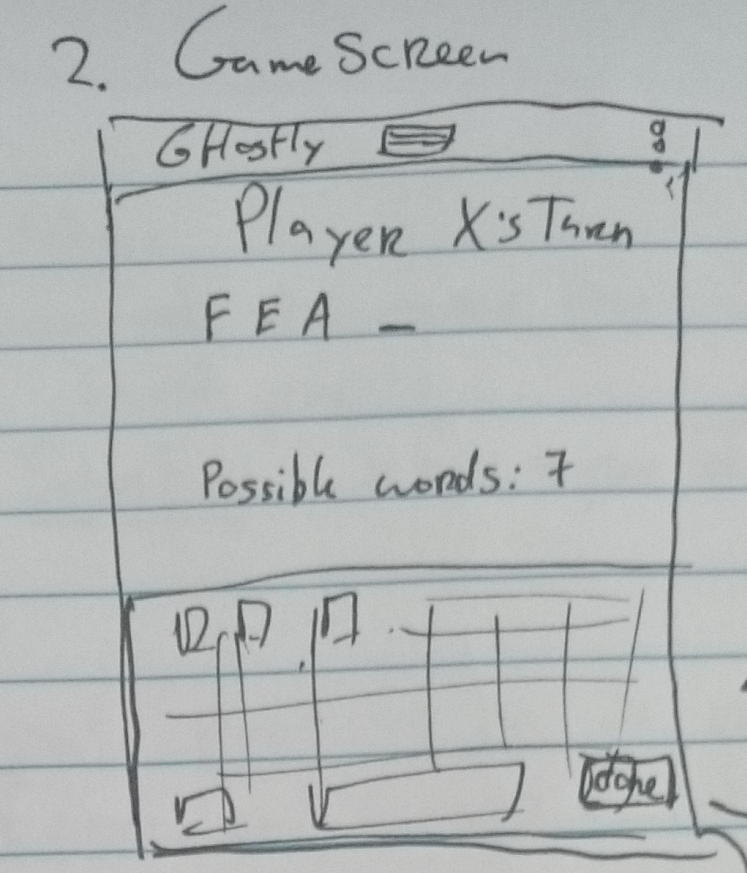 2. Game Screen
GHostly
Player X's Turn
F E A _
Possible words: 7
done